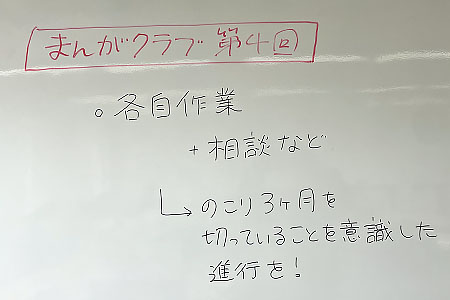 まんがクラブ 第4回
○ 各自作業
+ 相談など
↳ のこり3ヶ月を
切っていることを意識した
進行を!